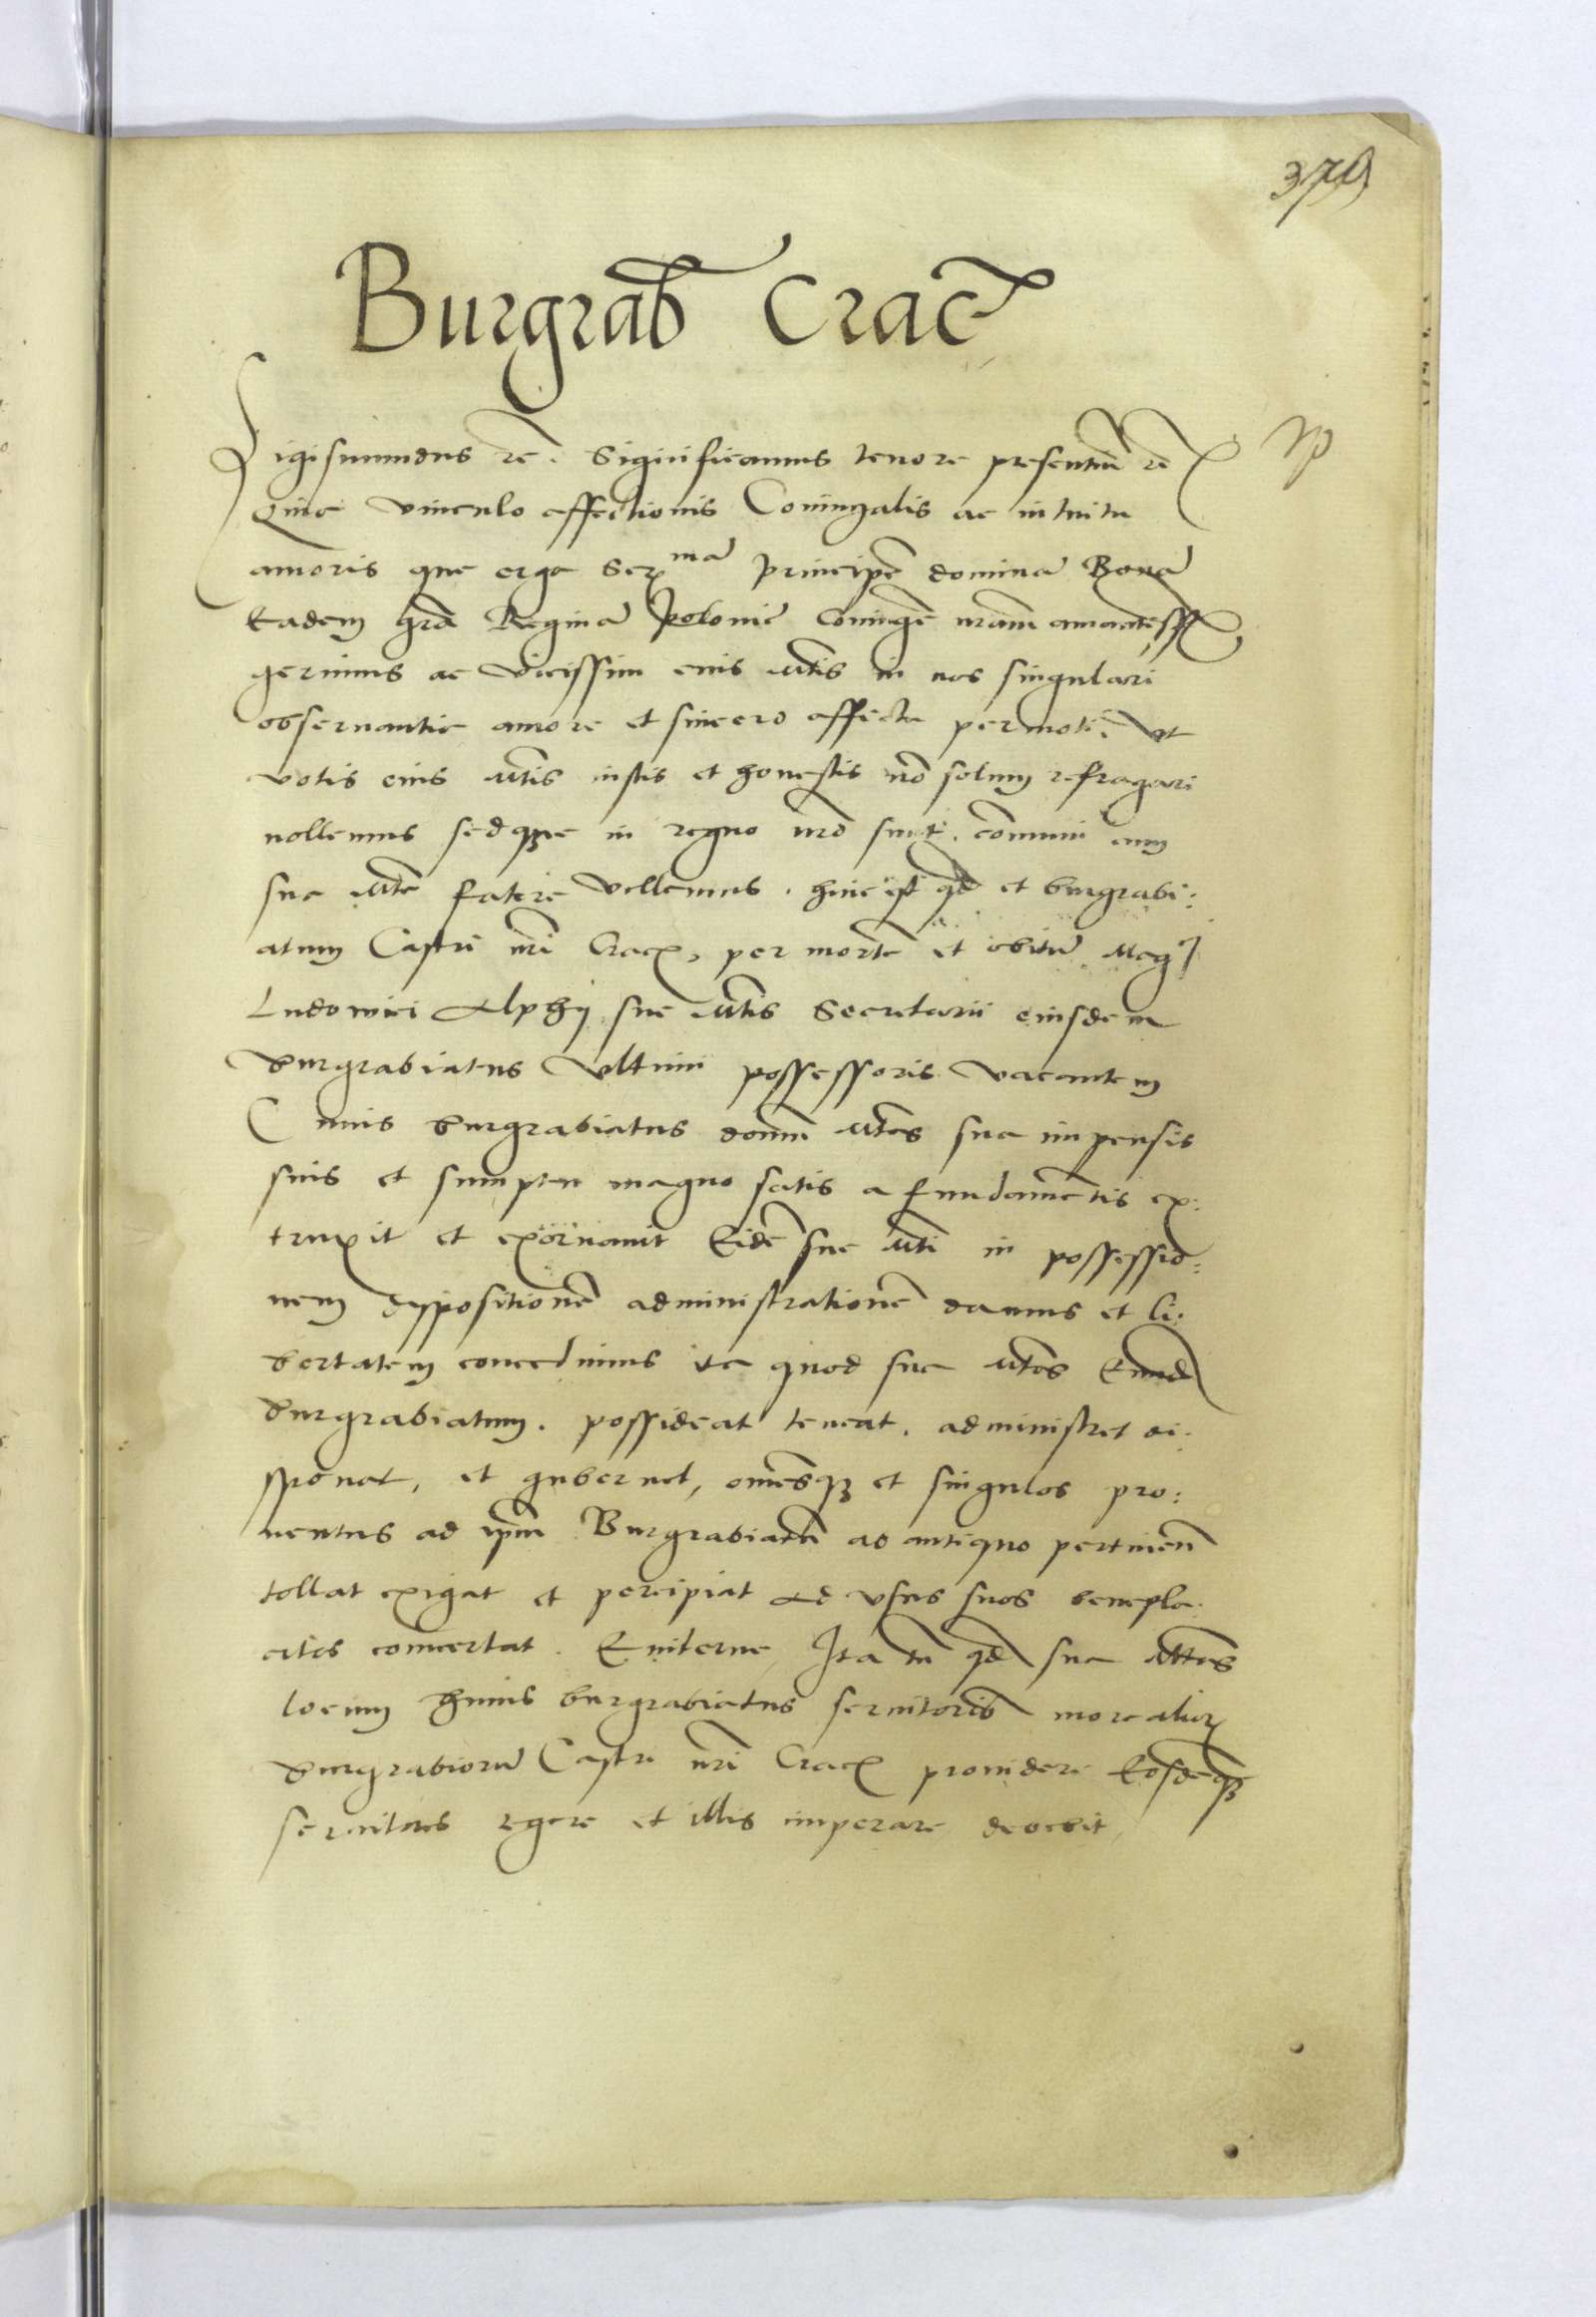 379
Burgrab Crac
Sigismundus rc. Significamus tenore presentium rc
Quia vinculo affectionis Coniugalis ac intuitu
amoris que erga Ser^ma principe domina Bona
Eadem gra Regina polonie Coniugē nram
gerimus ac vicissim eius Mtis in nos singulari
observantie amore et sincero affectu permoti, vt
votis eius Mtis iustis et honestis nō solum refragari
nollemus sed que in regno nro sunt. comuni cum
sua Mte facere vellemus. hinc est qd et burgrabi:
atum Castri nri Crac, per morte et obitū Mag^ci
Ludowici Alphij sue Mtis Secretarii eiusdem
burgrabiatus vltimi possessoris vacantem
Cuius burgrabiatus domū Mtas sua impensis
suis et sumptu magno satis a fundamētis ex:
truxit et exornauit Eidē sue Mti in possessio:
nem dispositionē administrationē damus et li:
bertatem concedimus ita quod sua Mtas Eundē
burgrabiatum. possideat teneat. administret di:
sponat, et gubernet, omēsq3 et singulos pro:
uentus ad ipm Burgrabiatū ab antiquo pertinen
tollat exigat et percipiat Ad vsus suos benepla
citos conuertat. Ita tn qd sua Mtas
locum huius burgrabiatus seruitorib more alior
burgrabiorū Castri nri Crac prouidere Eosdēq3
seruitores regere et illis imperare debebit